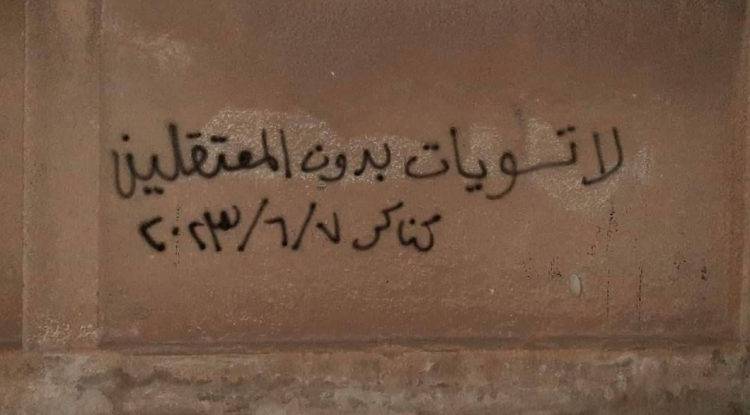 لا تسويات بدون المعتقلين
كناكر ٢٠٢٣/٦/٧